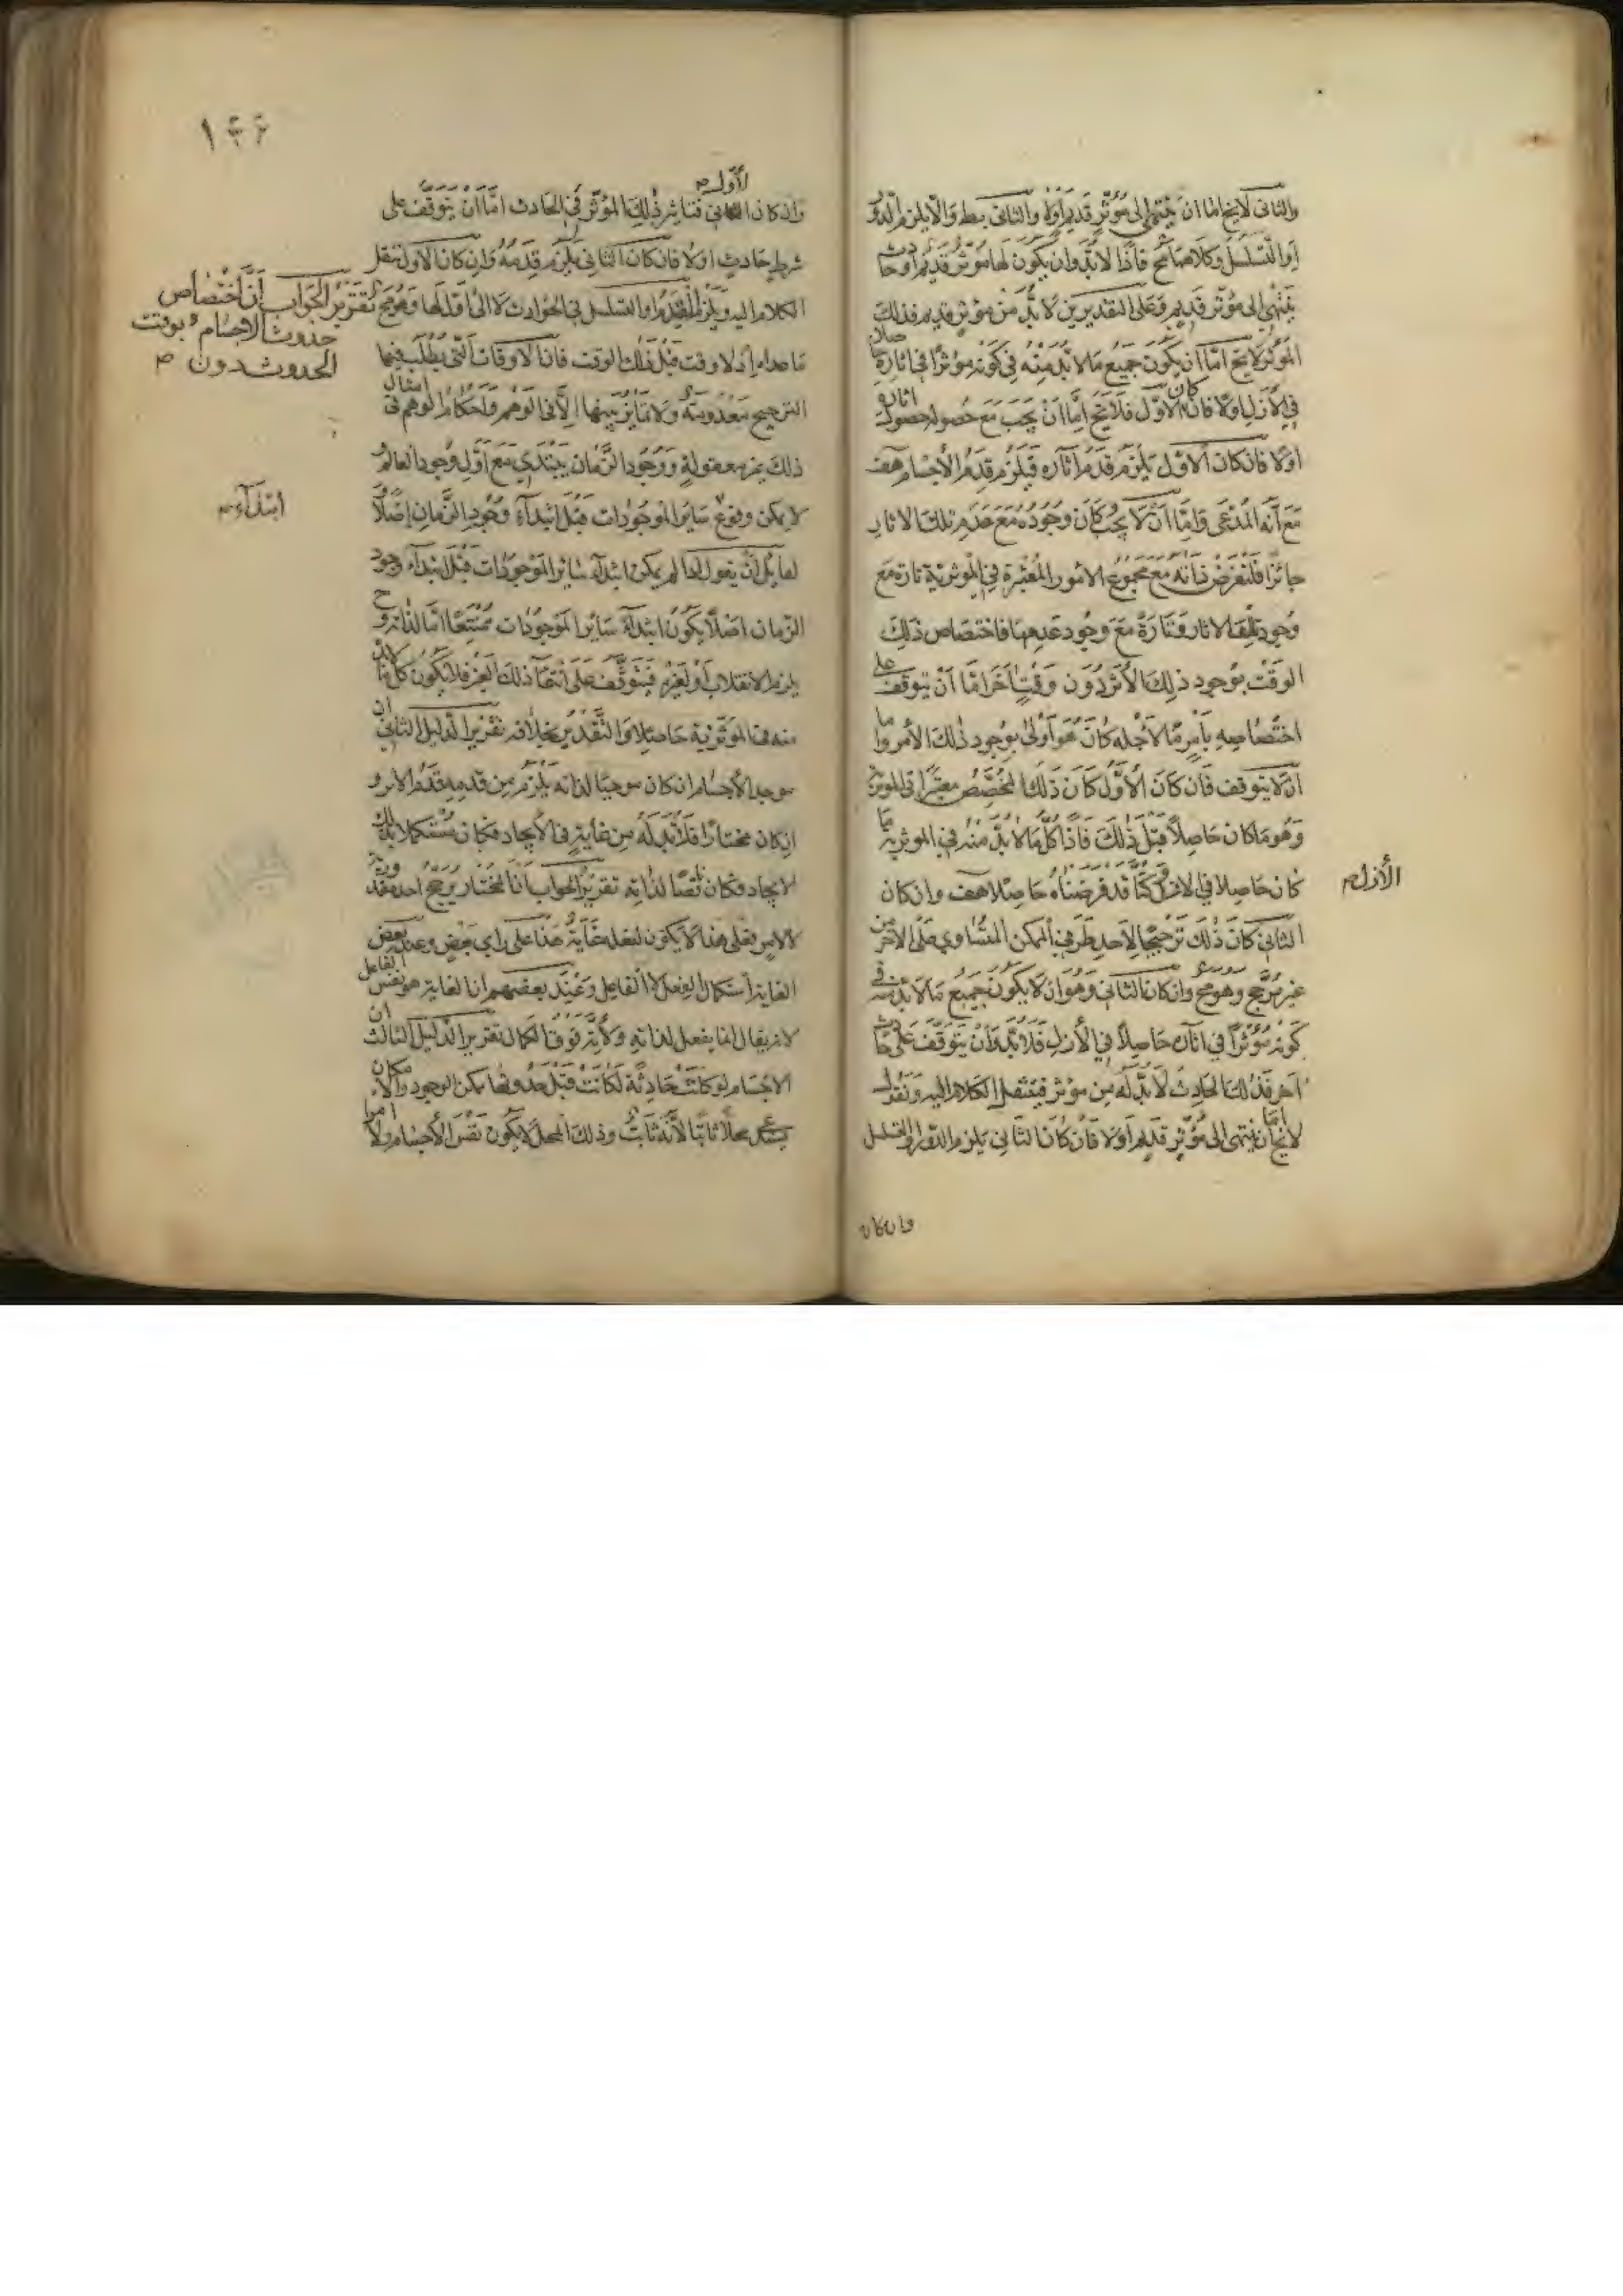 والثانى لا يخ اما ان ينتهى الى مؤثر قديم اولا والثانى بط والا يلزم الدور
او التسلسل وكلاهما مح فاذا لابد وان يكون لها مؤثر قديم او حادث
ينتهى الى مؤثر قديم وعلى التقديرين لا بد من مؤثر قديم فذلك
المؤثر لا يخ اما ان يكون جميع مالابد منه فى كونه مؤثرا فى اثاره حاصلا
فى الازل اولا فان كان الاول فلا يخ اما ان يجب مع حصوله حصول اثاره
اولا فان كان الاول يلزم قدم آثاره فيلزم قدم الأجسام هف
مع أنه المدعى واما ان لا يجب كان وجوده مع عدم تلك الاثار
جائزا فلنفرض ذاته مع مجموع الامور المعتبرة فى المؤثرية تارة مع
وجود تلك الاثار وتارة مع وجود عدمها فاختصاص ذلك
الوقت بوجود ذلك الأثر دون وقت آخر اما أن يتوقف على
اختصاصه بأمر ما لأجله كان هو أولى بوجود ذلك الأمر واما
ان لا يتوقف فان كان الأول كان ذلك المخصص معتبرا فى المؤثرية
وهو ما كان حاصلا قبل ذلك فاذا كل ما لابد منه فى المؤثرية ما
كان حاصلا فى الازل وكنا قد فرضناه حاصلا هف وان كان
الأزل
الثانى كان ذلك ترجيحا لاحد طرفي الممكن المتساوي على الآخر من
غير مرجح وهو مح وان كان الثانى وهو ان لا يكون جميع مالابد منه فى
كونه مؤثرا في اثاره حاصلا في الأزل فلابد وأن يتوقف على حادث
آخر فذلك الحادث لابد له من مؤثر فينتقل الكلام اليه ونقول
لا يخ اما ان ينتهى الى مؤثر قديم أولا فان كان الثانى يلزم الدور او التسلسل
وان كان
١٣۶
وان كان الاول فتأثير ذلك المؤثر في الحادث اما أن يتوقف على
شرط حادث اولا فان كان الثانى يلزم قدمه وان كان الاول ننقل
الكلام اليه ويلزم التقدم او التسلسل فى الحوادث لا الى اول لها وهو مح تقرير الجواب أن اختصاص
حدوث الاجسام بوقت
الحدوث دون
ما عداه اذ لا وقت قبل ذلك الوقت فان الاوقات التى يطلب فيها
الترجيح معدومة ولا تمايز بينها الا فى الوهم واحكام الوهم فى امثال
ذلك غير معقولة ووجود الزمان يبتدي مع أول وجود العالم
لا يمكن وقوع سائر الموجودات قبل ابتدآء وجود الزمان اصلا
ابتدآء
لقائل أن يقول لما لم يمكن ابتدآء سائر الموجودات قبل ابتدآء وجود
الزمان اصلا يكون ابتدآء سائر الموجودات ممتنعا اما لذاته وح
يلزم الانقلاب أو لغيره فيتوقف على انتفآء ذلك الغير فلا يكون كل ما لابد
منه فى المؤثرية حاصلا والتقدير بخلافه تقرير الدليل الثانى ان
موجد الأجسام ان كان موجبا لذاته يلزم من قدمه قدم الاثر و
ان كان مختارا فلابد له من غاية فى الايجاد فكان مستكملا بذلك
الايجاد فكان ناقصا لذاته تقرير الجواب ان المختار يرجح احد مقدوريه
لا لامر فعلى هذا لا يكون لفعله غاية هذا على راى بعض وعند بعض
الغاية استكمال الفعل لا الفاعل وعند بعضهم ان الغاية هو نفس الفاعل
لانه يقال انما يفعل لذاته ولأنه فوق الكمال تقرير الدليل الثالث ان
الاجسام لو كانت حادثة لكانت قبل حدوثها ممكن الوجود والامكان
يستدعى محلا ثابتا لأنه ثابت وذلك المحل لا يكون نفس الأجسام ولا امرا